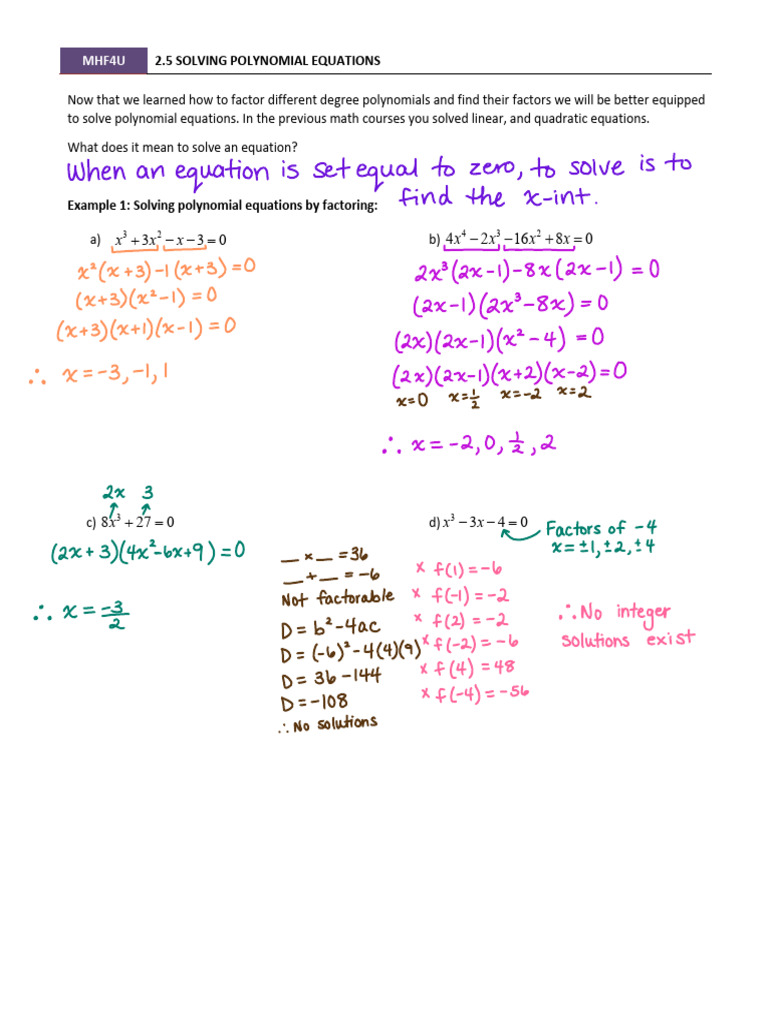 MHF4U 2.5 SOLVING POLYNOMIAL EQUATIONS
Now that we learned how to factor different degree polynomials and find their factors we will be better equipped
to solve polynomial equations. In the previous math courses you solved linear, and quadratic equations.
What does it mean to solve an equation?
When an equation is set equal to zero, to solve is to
find the x-int.
Example 1: Solving polynomial equations by factoring:
a) x³ + 3x² − x − 3 = 0
x²(x+3) −1(x+3) = 0
(x+3)(x²−1) = 0
(x+3)(x+1)(x−1) = 0
∴ x = −3, −1, 1
b) 4x⁴ − 2x³ −16x² + 8x = 0
2x³(2x−1) − 8x(2x−1) = 0
(2x−1)(2x³−8x) = 0
(2x)(2x−1)(x²−4) = 0
(2x)(2x−1)(x+2)(x−2) = 0
x=0 x=½ x=−2 x=2
∴ x = −2, 0, ½, 2
2x 3
c) 8x³ + 27 = 0
(2x+3)(4x²−6x+9) = 0
∴ x = −3/2
__ × __ = 36
__ + __ = −6
Not factorable
D = b²−4ac
D = (−6)²−4(4)(9)
D = 36 −144
D = −108
∴ No solutions
d) x³ − 3x − 4 = 0
Factors of −4
x = ±1, ±2, ±4
x f(1) = −6
x f(−1) = −2
x f(2) = −2
x f(−2) = −6
x f(4) = 48
x f(−4) = −56
∴ No integer
solutions exist